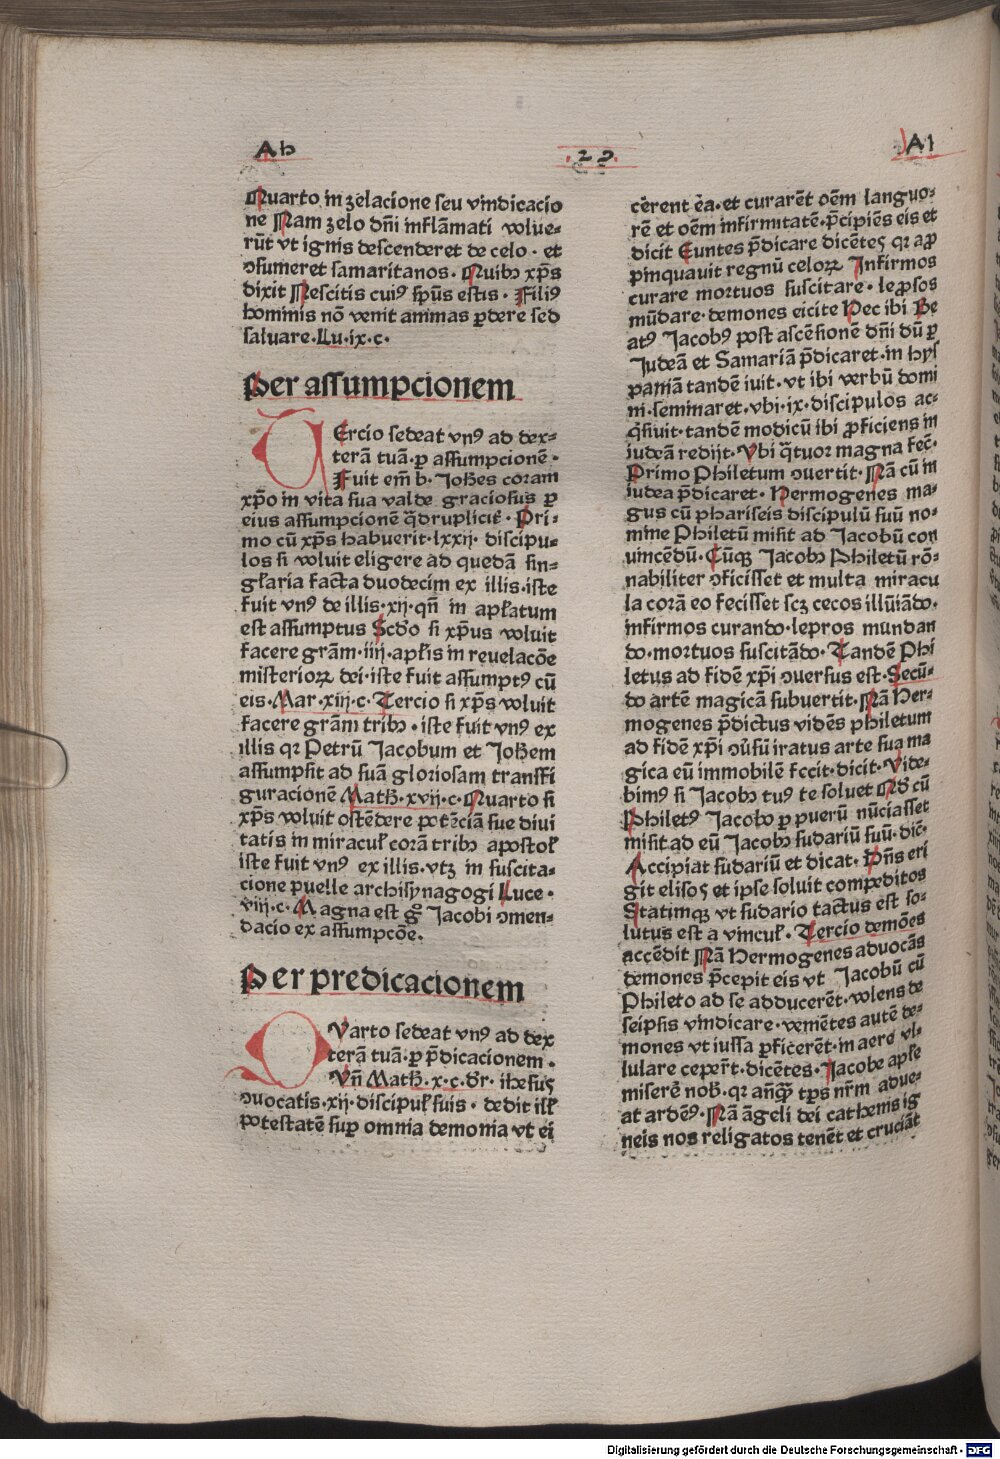 Ah
·29·
A1
Quarto in zelacione seu vindicacio
ne Nam zelo dn̄i inflāmati volue-
rūt vt ignis descenderet de celo · et
ↄsumeret samaritanos · Quibꝫ xp̄s
dixit Nescitis cuiꝰ sp̄us estis · Filiꝰ
hominis nō venit animas ꝑdere sed
saluare · Lu · ix · c ·
Per assumpcionem
TErcio sedeat vnꝰ ad dex-
terā tuā · ꝑ assumpcionē ·
Fuit em̄ b · Joh̄es coram
xp̄o in vita sua valde graciosus ꝑ
eius assumpcionē q̄druplicit̄ · Pri-
mo cū xp̄s habuerit · lxxij · discipu-
los si voluit eligere ad quedā sin-
gl̄aria facta duodecim ex illis · iste
fuit vnꝰ de illis · xij · qn̄ in apl̄atum
est assumptus Scd̄o si xp̄us voluit
facere grām · iiij · apl̄is in reuelacōe
misterioꝝ dei · iste fuit assumptꝰ cū
eis · Mar · xiij · c · Tercio si xp̄s voluit
facere grām tribꝫ · iste fuit vnꝰ ex
illis qꝛ Petrū Jacobum et Joh̄em
assumpsit ad suā gloriosam transfi
guracionē Math̄ · xvij · c · Quarto si
xp̄s voluit ostēdere potēciā sue diui
tatis in miracul̄ corā tribꝫ apostol̄
iste fuit vnꝰ ex illis · vtꝫ in suscita-
cione puelle archisynagogi Luce ·
viij · c · Magna est gͦ Jacobi ↄmen-
dacio ex assumpcōe ·
Per predicacionem
QVarto sedeat vnꝰ ad dex
terā tuā · ꝑ p̄dicacionem ·
Vn̄ Math̄ · x · c · dr̄ · ihesus
ↄuocatis · xij · discipul̄ suis · dedit ill̄
potestatē suꝑ omnia demonia vt ei
cērent ēa · et curarēt oēm languo-
rē et oēm infirmitatē · p̄cipiēs eis et
dicit Euntes p̄dicare dicētes qꝛ aꝓ
pinquauit regnū celoꝝ Infirmos
curare mortuos suscitare · leprosos
mūdare · demones eicite Hec ibi Be
atꝰ Jacobꝰ post ascēsionē dn̄i dū ꝑ
Judeā et Samariā p̄dicaret · in hys
paniā tandē iuit · vt ibi verbū domi
ni · seminaret · vbi · ix · discipulos ac-
q̄siuit · tandē modicū ibi ꝓficiens in
iudeā redijt · Vbi q̄tuor magna fec̄ ·
Primo Philetum ↄuertit · Nā cū in
iudea p̄dicaret · Hermogenes ma-
gus cū phariseis discipulū suū no-
mine Philetū misit ad Jacobū con
uincēdū · Cūqꝫ Jacobꝰ Philetū rō-
nabiliter ↄficisset et multa miracu
la corā eo fecisset scꝫ cecos illūiādo ·
infirmos curando · lepros mundan
do · mortuos suscitādo · Tandē Phi
letus ad fidē xp̄i ↄuersus est · Secū-
do artē magicā subuertit · Nā Her-
mogenes p̄dictus vidēs philetum
ad fidē xp̄i ↄūsū iratus arte sua ma
gica eū immobilē fecit · dicit · Vide-
bimꝰ si Jacobꝰ tuꝰ te soluet Qd̄ cū
Philetꝰ Jacobo ꝑ puerū nūciasset
misit ad eū Jacobꝰ sudariū suū · dic̄ ·
Accipiat sudariū et dicat · Dn̄s eri
git elisos et ipse soluit compeditos
Statimqꝫ vt sudario tactus est so-
lutus est a vincul̄ · Tercio demōes
accēdit Nā Hermogenes aduocās
demones p̄cepit eis vt Jacobū cū
Phileto ad se adducerēt · volens de
seipsis vindicare · veniētes autē de-
mones vt iussa ꝑficerēt · in aere vl-
lulare ceper̄t · dicētes · Jacobe apl̄e
miserē nob̄ · qꝛ an̄q̄ꝫ tp̄s nr̄m adue-
at ardēꝰ · Nā āgeli dei cathenis ig
neis nos religatos tenēt et cruciāt
Digitalisierung gefördert durch die Deutsche Forschungsgemeinschaft - DFG